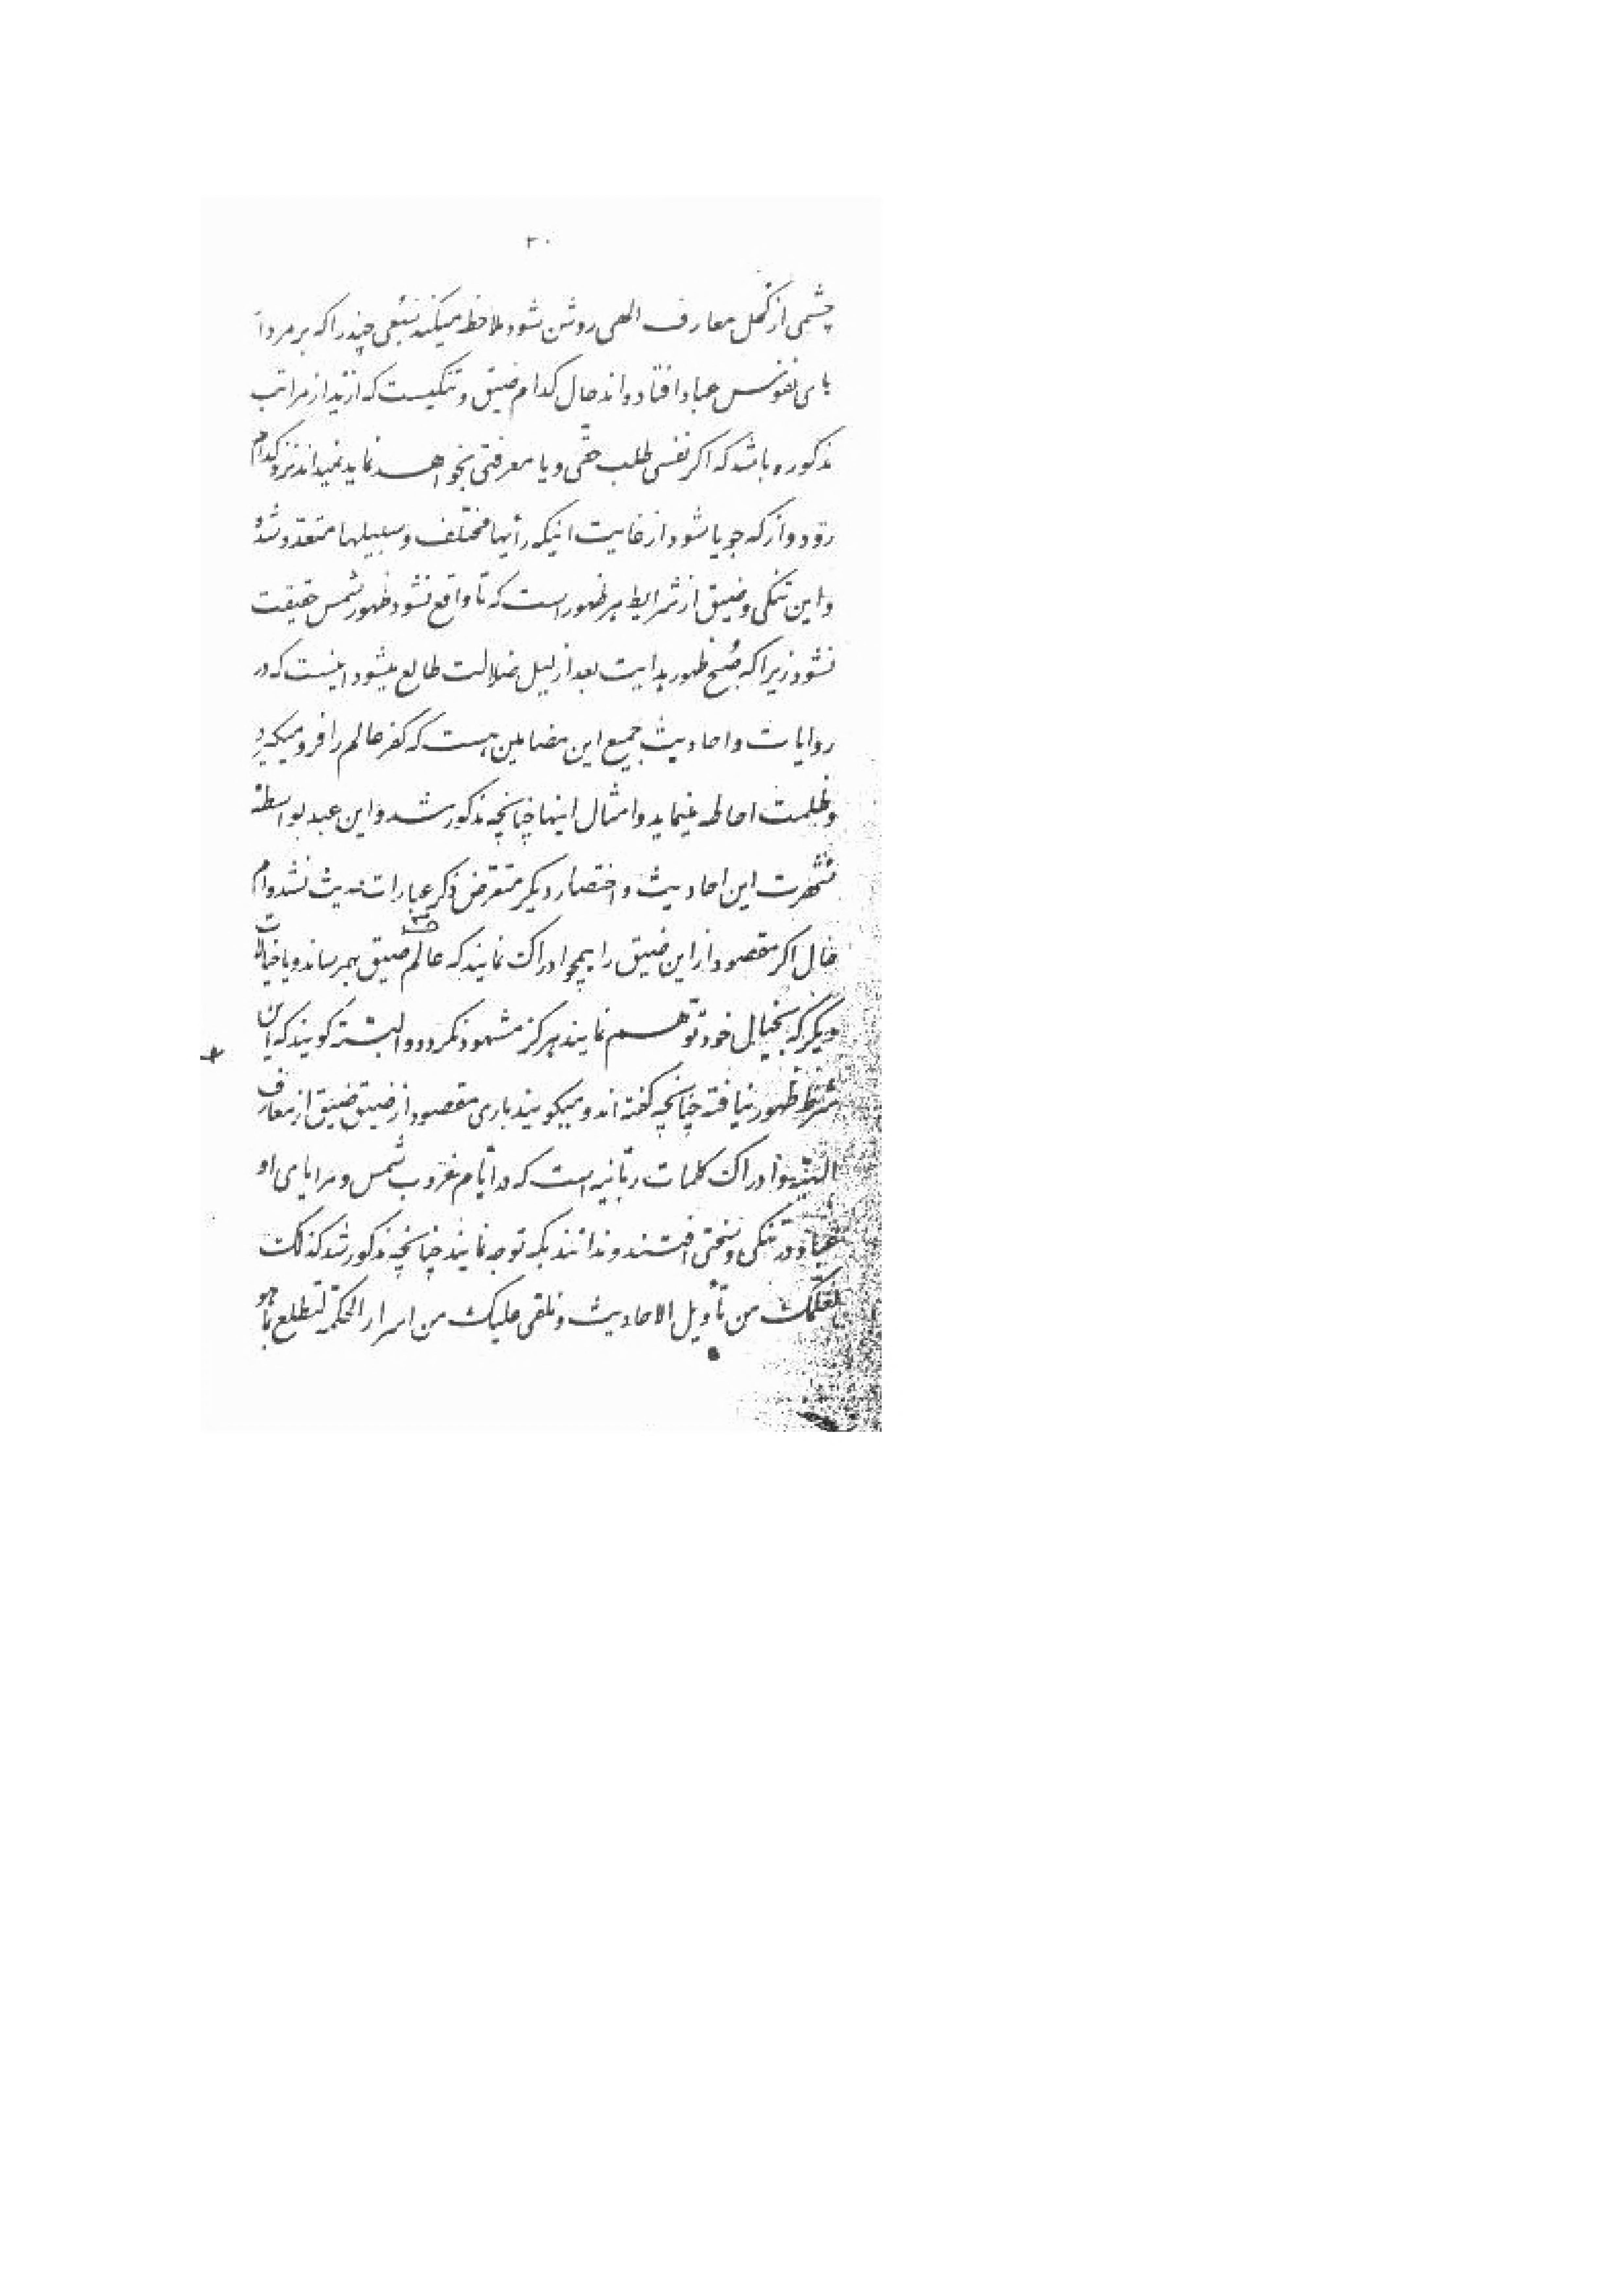 ۲۰
چشمی از کحل معارف الهی روشن شود ملاحظه میکند سبعی چند را که بر مردا
بای نفوس عباد افتاده‌اند حال کدام ضیق و تنگیست که ازید از مراتب
مذکوره باشد که اگر نفسی طلب حقی و یا معرفتی بخواهد نماید نمیداند نزد کدام
رود و از که جویا شود از غایت اینکه رأیها مختلف و سبیلها متعدد شده
و این تنگی و ضیق از شرایط هر ظهور است که تا واقع نشود ظهور شمس حقیقت
نشود زیرا که صبح ظهور هدایت بعد از لیل ضلالت طالع میشود اینست که در
روایات و احادیث جمیع این مضامین هست که کفر عالم را فرو میگیرد
و ظلمت احاطه مینماید و امثال اینها چنانچه مذکور شد و این عبد بواسطه
شهرت این احادیث و اختصار دیگر متعرض ذکر عبارات حدیث نشده‌ام
حال اگر مقصود از این ضیق را همچو ادراک نمایند که عالم ضیق بهمرساند و یا خیالات
دیگر که بخیال خود توهم نمایند هرگز مشهود نگردد و البته گویند که این
شرط ظهور نیافته چنانچه گفته‌اند و میگویند باری مقصود از ضیق ضیق از معارف
الهیه و ادراک کلمات ربانیه است که در ایام غروب شمس و مرایای او
عباد در تنگی و سختی افتند و ندانند بکه توجه نمایند چنانچه مذکور شد کذلک
نعلمک من تأویل الاحادیث و نلقی علیک من اسرار الحکمة لتطلع بما هو